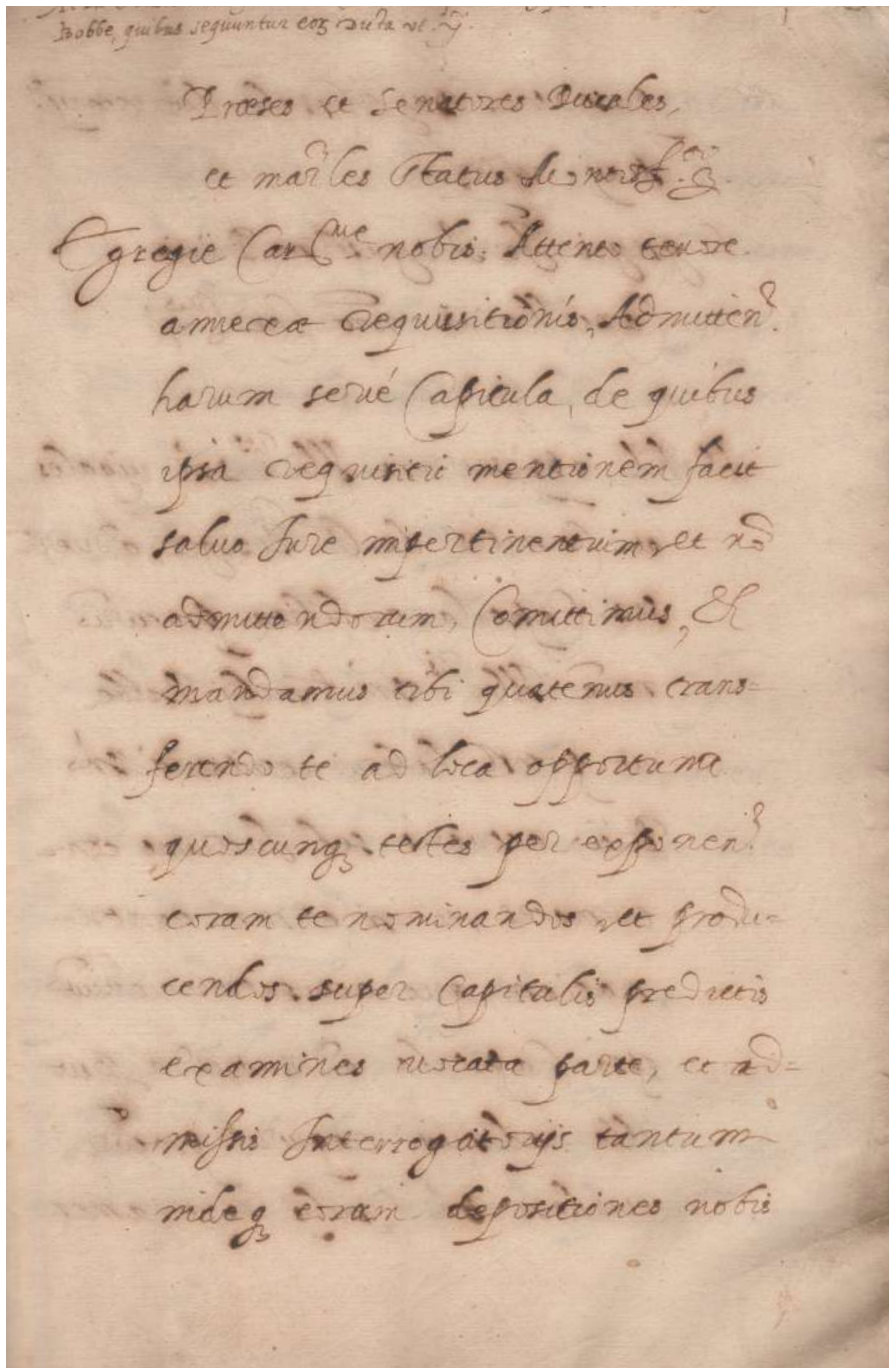 Bobbe, quibus sequuntur eoꝝ Dicta vt
Præses et Senatores Ducales,
et mar^les Status Montisf^ti
Egregie Car^me nobis. Atteno tenore
annexæ Requisitionis, Admitten^s
harum serie Capitula, de quibus
ipsa requisitio mentionem facit
saluo Jure impertinentium, et nō
admittendorum, Comittimus, et
mandamus tibi quatenus trans=
ferendo te ad loca opportuna
quoscunqꝫ testes per exponen^s
coram te nominandos, et produ=
cendos super Capitulis predictis
examines vocata parte, et ad=
missis Interrogatorijs tantum
indeqꝫ eorum depositiones nobis